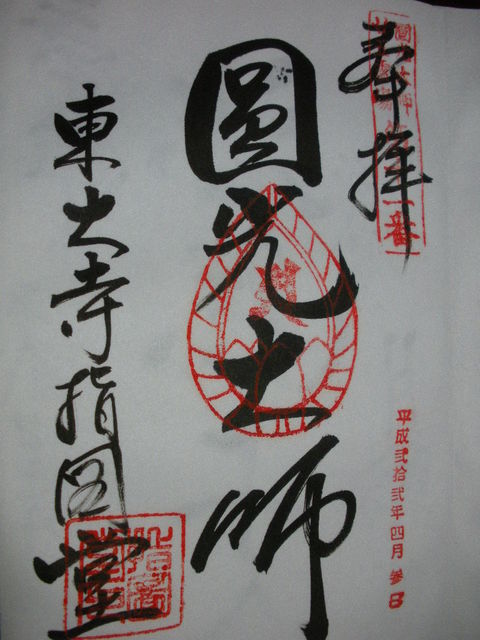 奉拝
平成弐拾弐年四月参日
圓光大師
東大寺指図堂